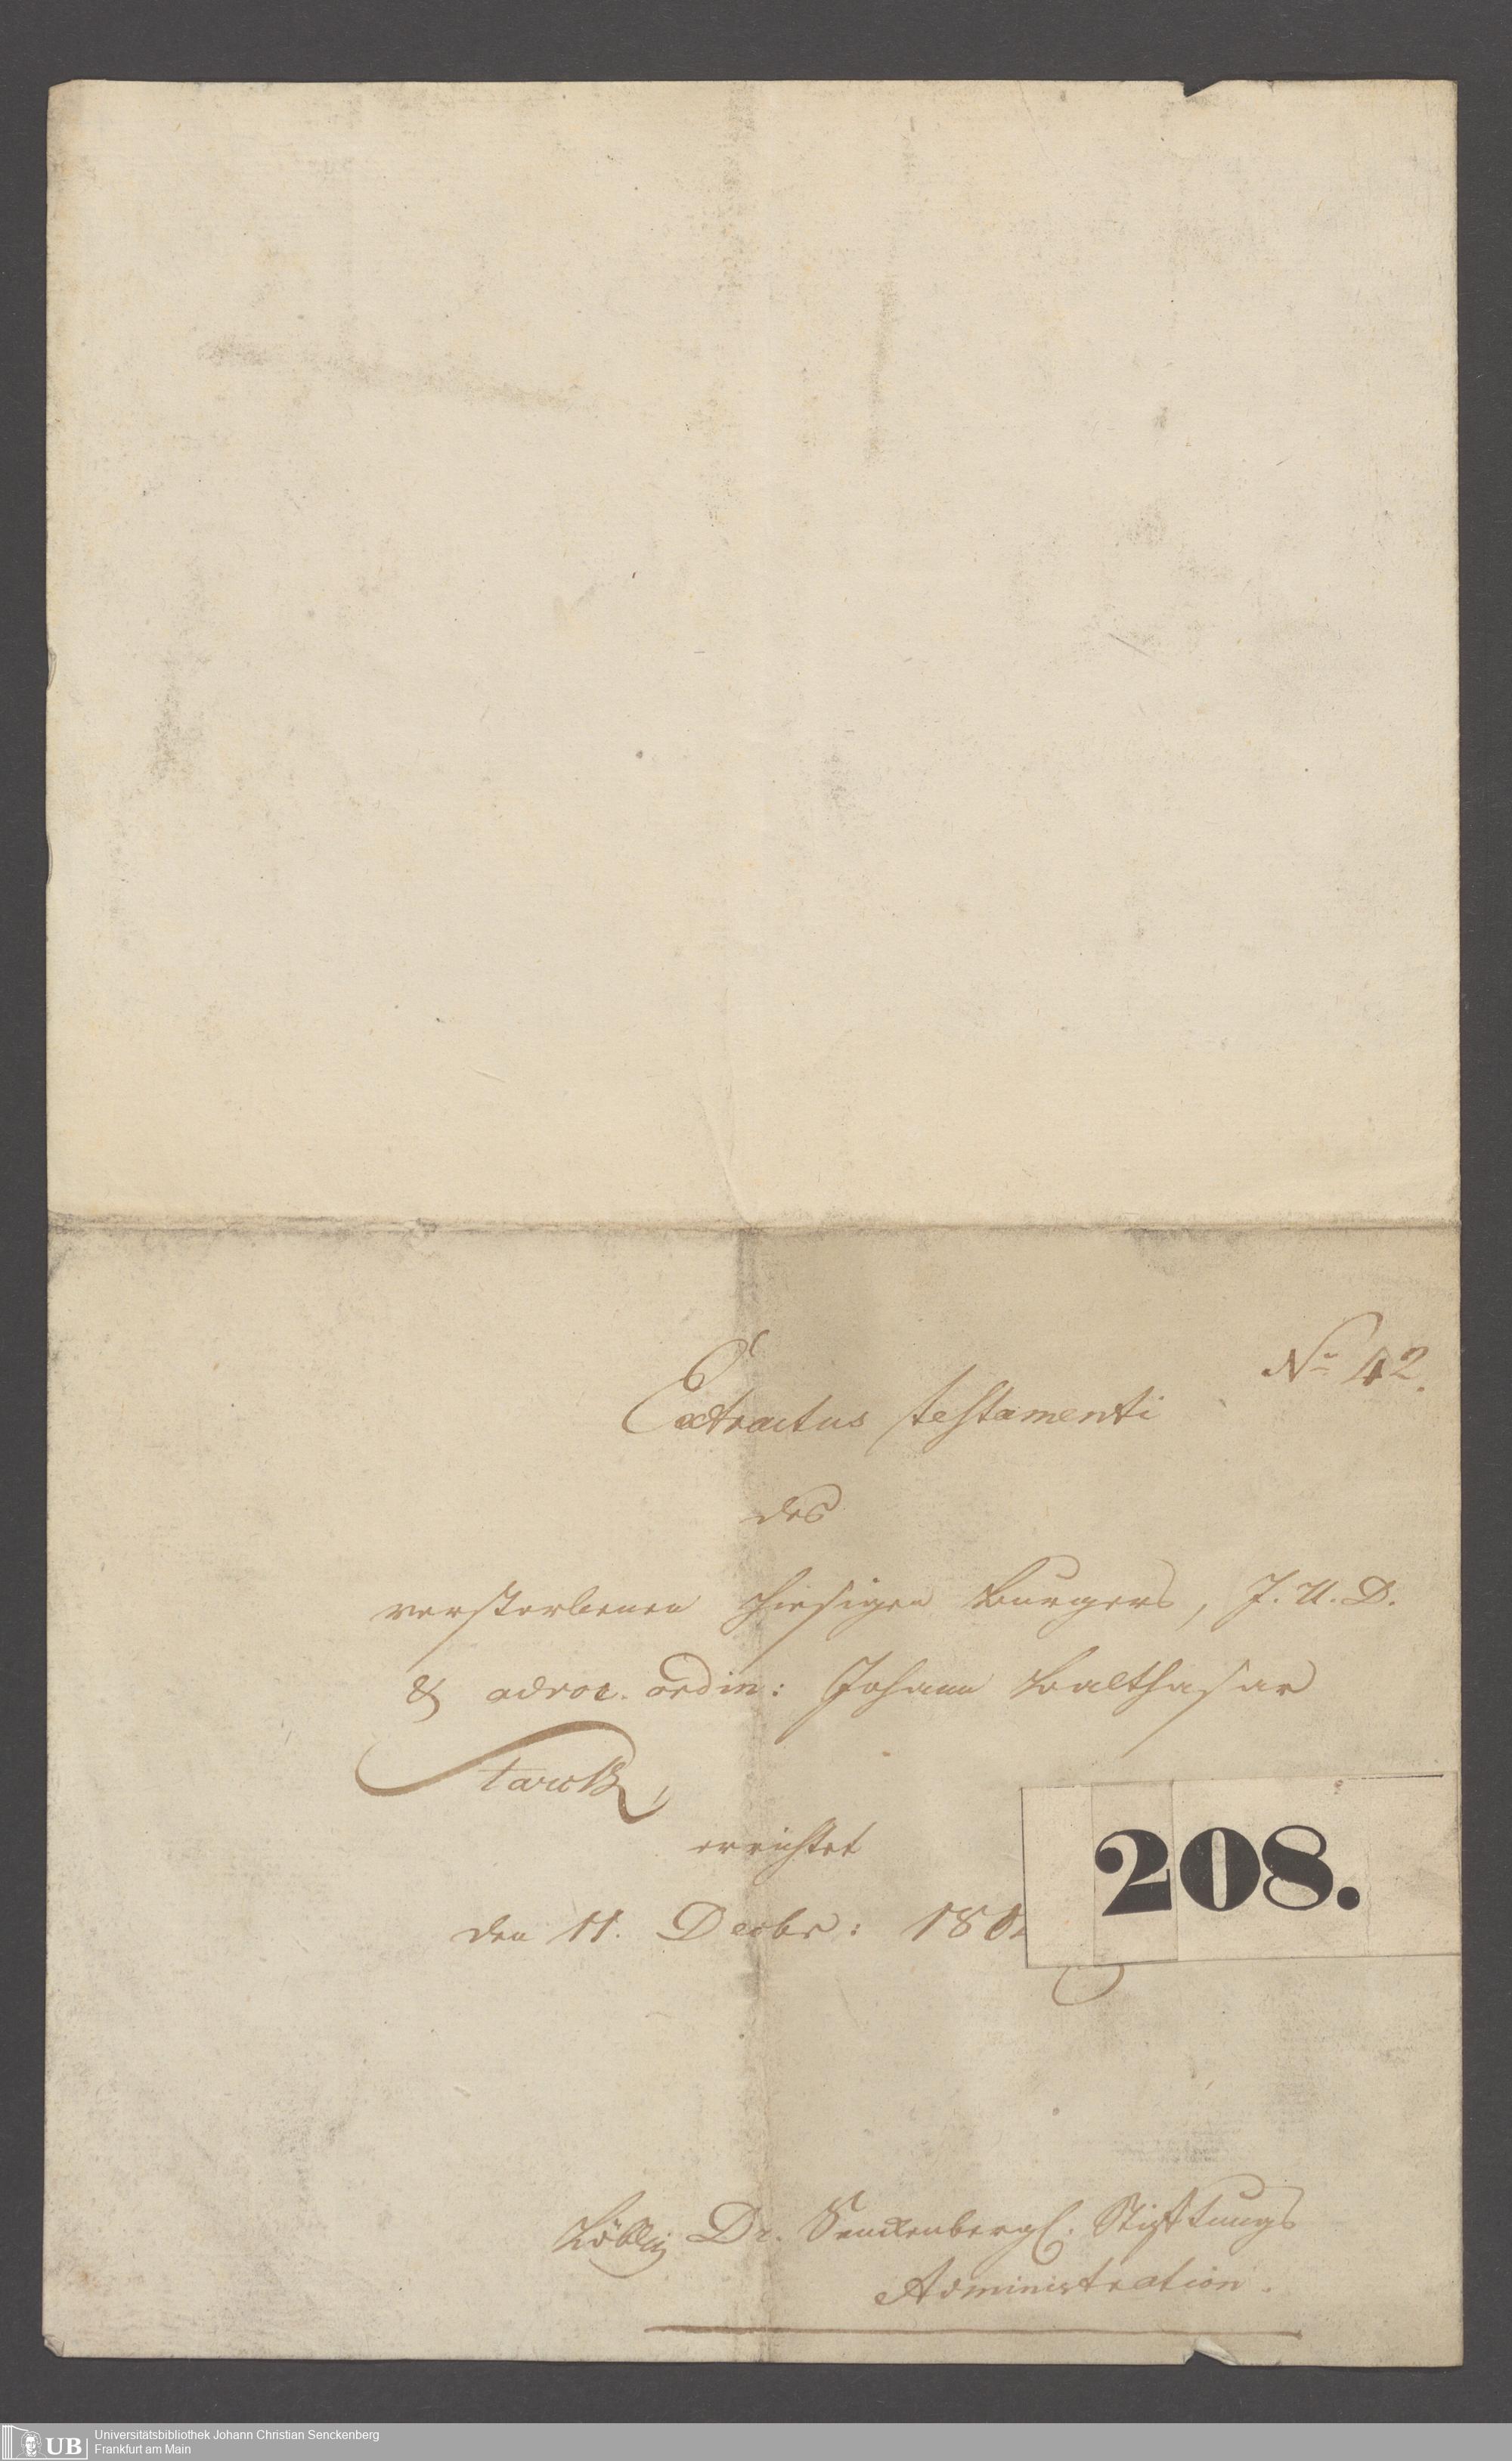 No 42.
Extractus testamenti
des
verstorbenen hiesigen Burgers, J. U. D.
& advoc. ordin: Johann Balthasar
Starck,
errichtet
den 11. Decbr: 181
208.
Löbl. Dr. Senckenbergl. Stiftungs
Administration.
UB
Universitätsbibliothek Johann Christian Senckenberg
Frankfurt am Main